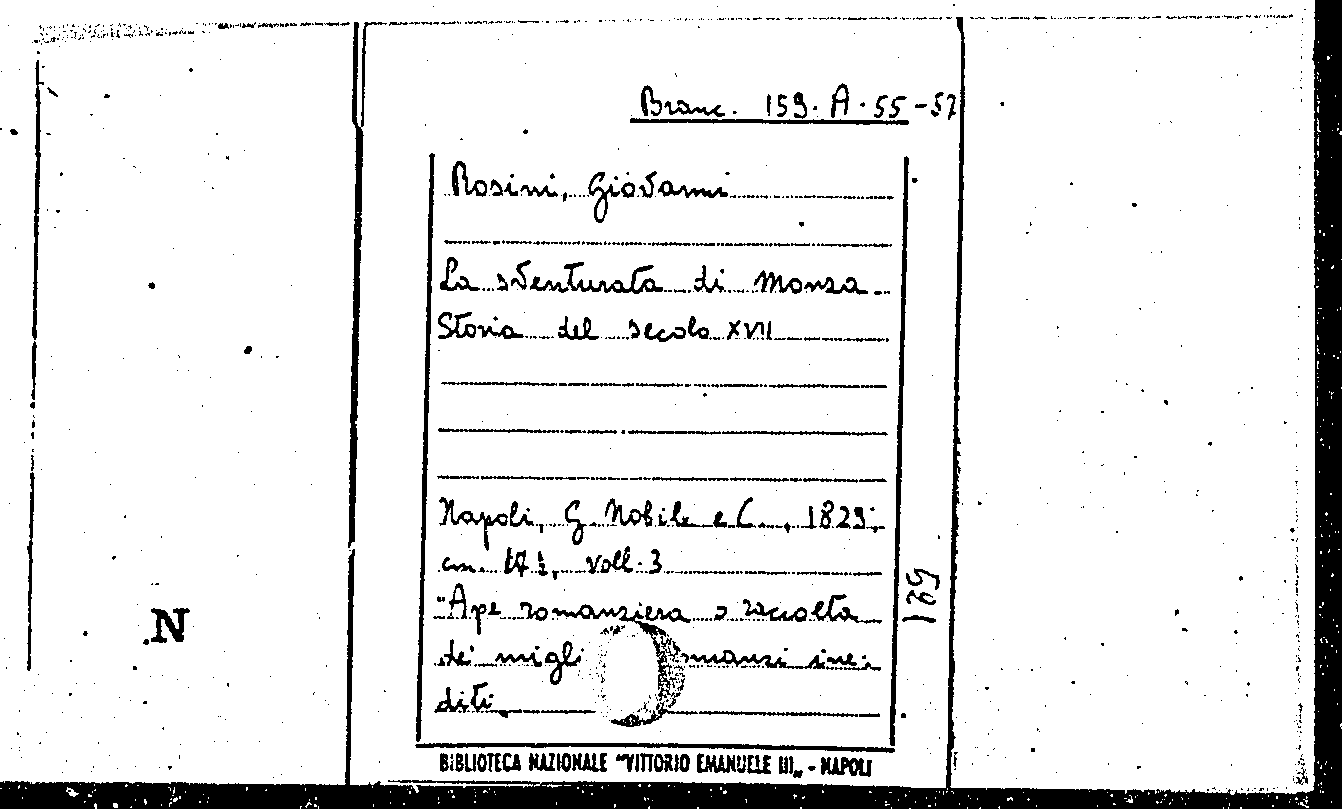 Branc. 159. A. 55-57
Rosini, Giovanni
La sventurata di Monza
Storia del secolo XVII
Napoli, G. Nobile e C., 1829;
cm. voll. 3
"Ape romanziera o raccolta
de' migli omanzi ine-
diti
189
N
BIBLIOTECA NAZIONALE "VITTORIO EMANUELE III" - NAPOLI